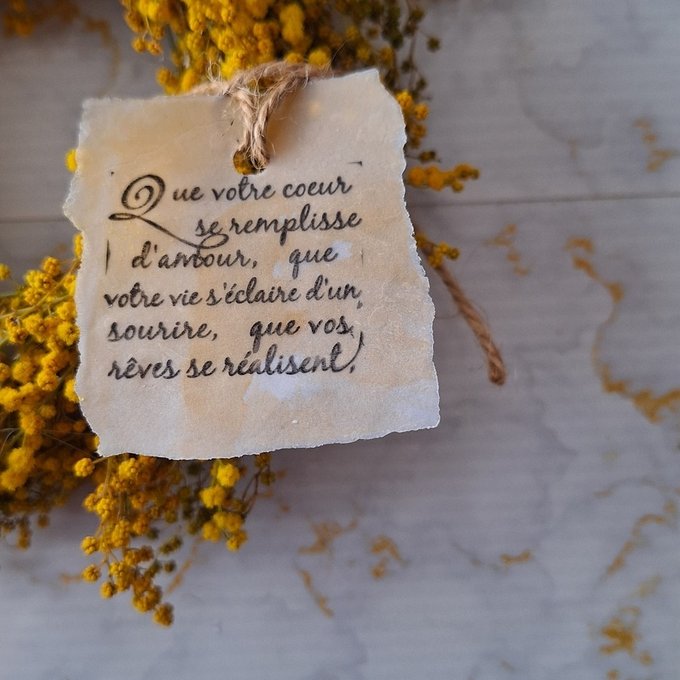 Que votre coeur
se remplisse
d'amour, que
votre vie s'éclaire d'un
sourire, que vos
rêves se réalisent,